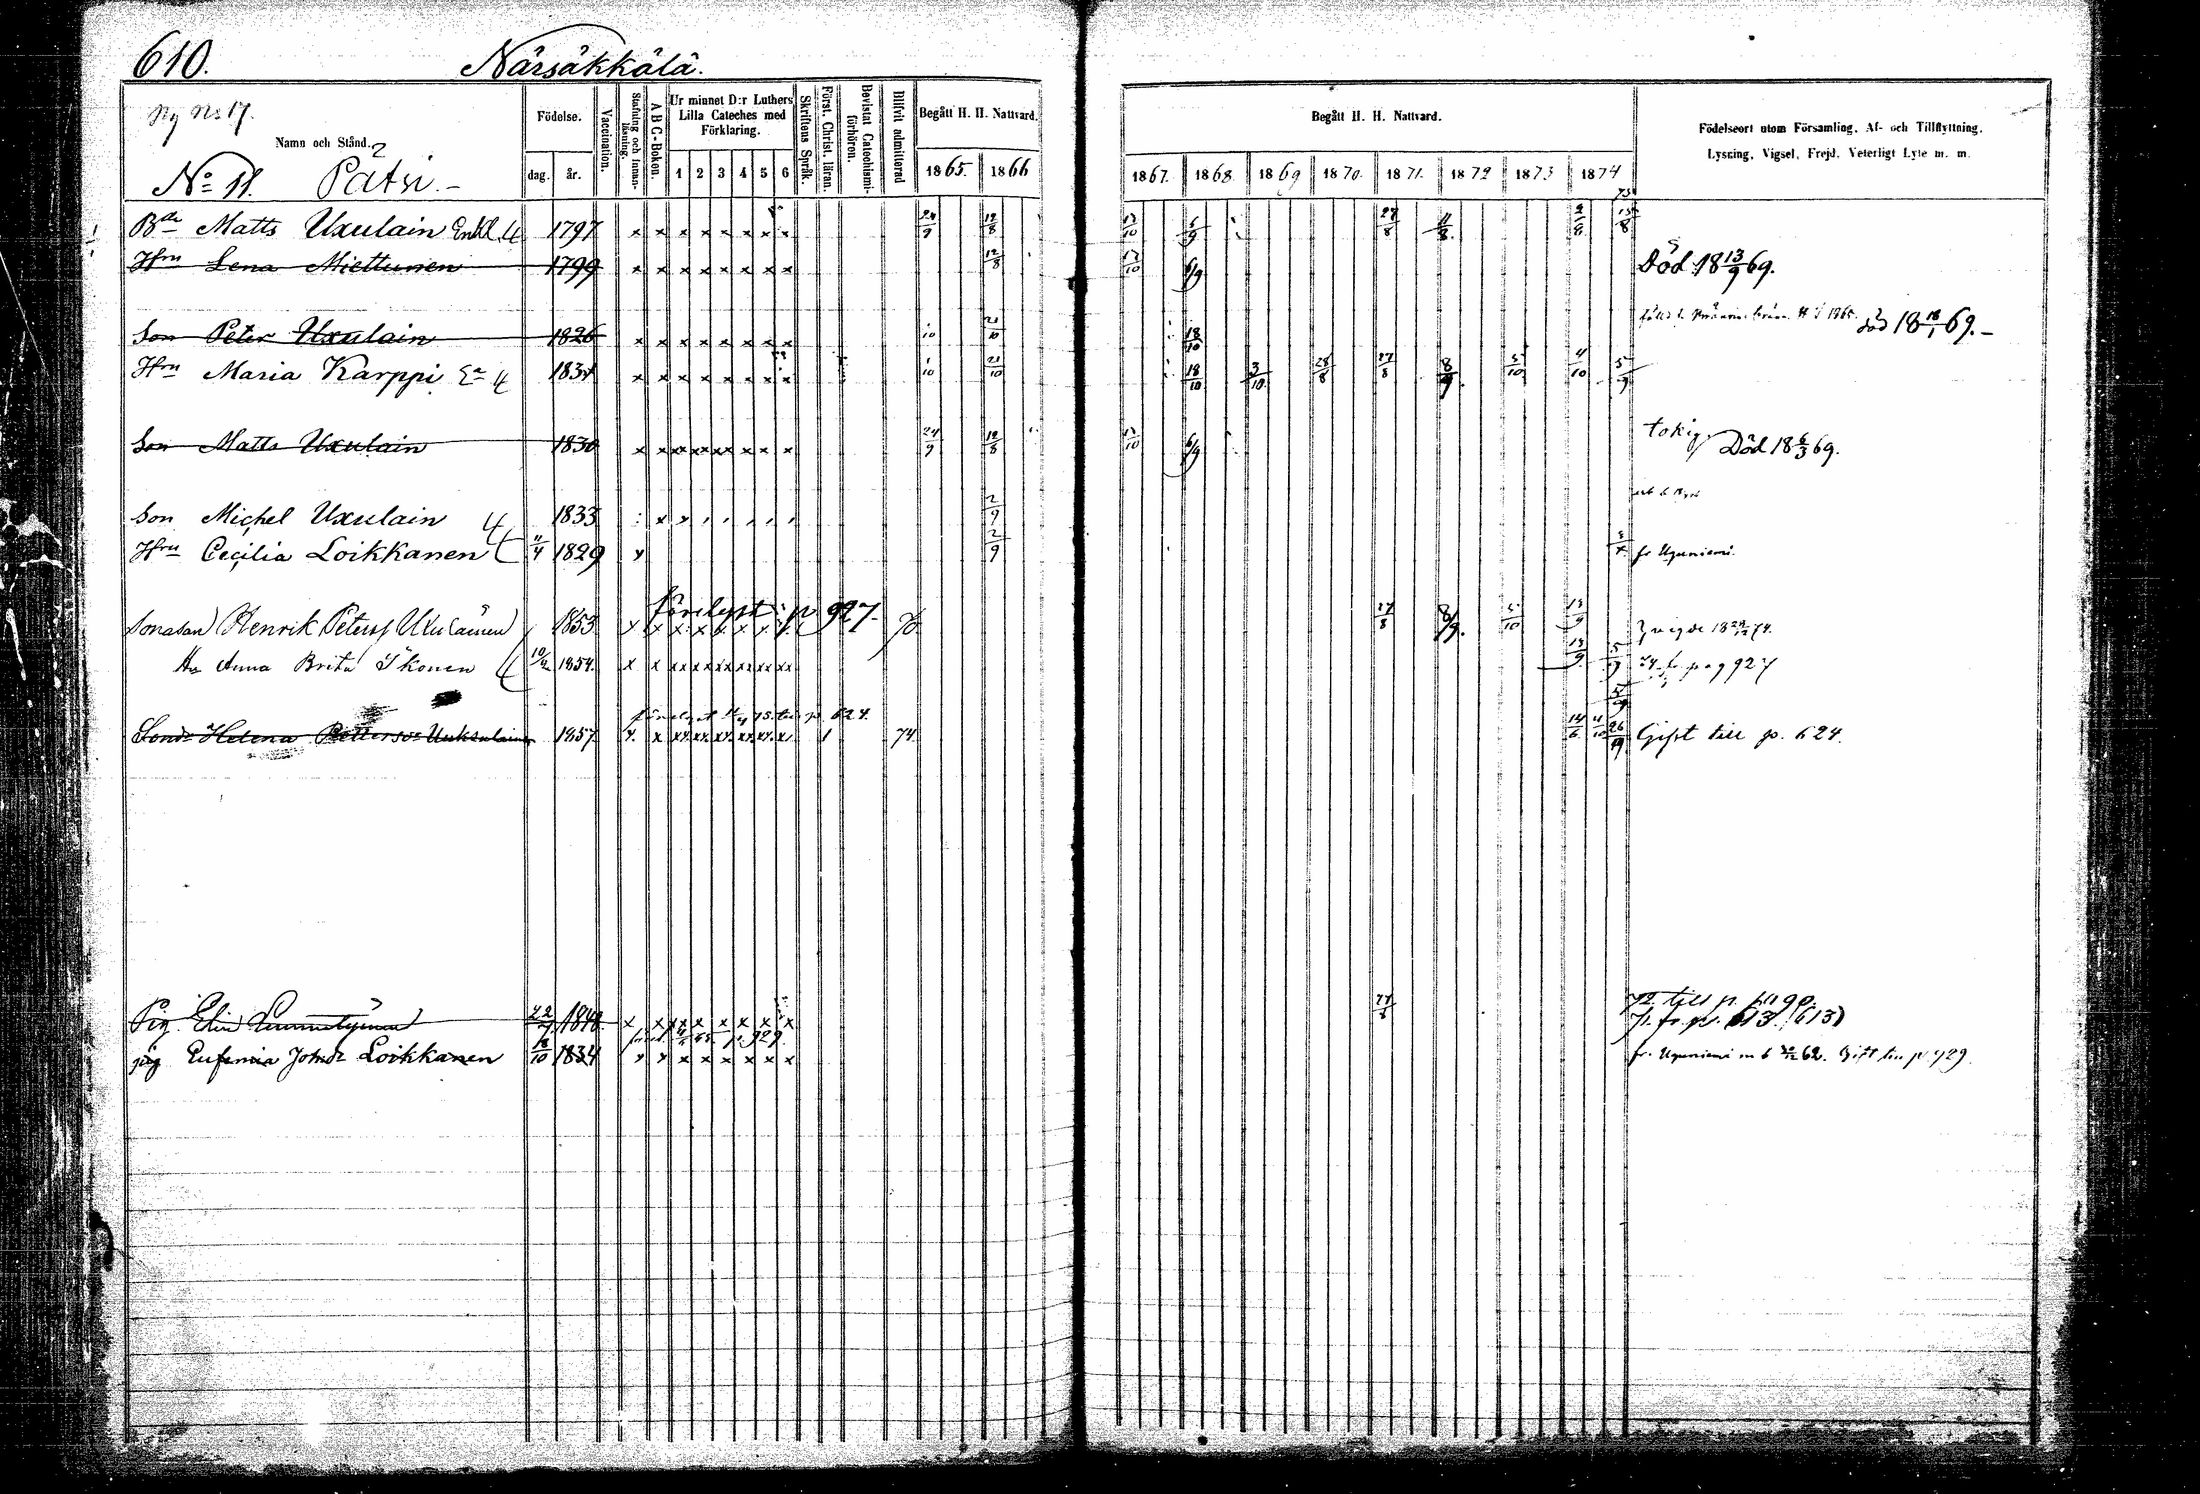 610. Närsäkkälä.
Ny No 17.
Namn och Stånd.
No 11. Pätsi.
Födelse.
dag. år.
Vaccination.
Stafning och Innan-läsning.
A B C-Boken.
Ur minnet D:r Luthers Lilla Cateches med Förklaring.
1 2 3 4 5 6
Skriftens Språk.
Först. Christ. läran.
Bevistat Catechismi-förhören.
Blifvit admitterad
Begått H. H. Nattvard.
1865. 1866
Begått H. H. Nattvard.
1867. 1868. 1869 1870. 1871. 1872 1873 1874 75
Födelseort utom Församling, Af- och Tillflyttning,
Lysning, Vigsel, Frejd, Veterligt Lyte m. m.
Bde Matts Uxulain Enkl. 4 1797 x x x x x x x x 24/9 12/8 13/10 6/9 27/8 11/8 2/8 15/8
Hru Lena Miettunen 1799 x x x x x x x x 12/8 13/10 6/9 Död 18 13/9 69.
Son Peter Uxulain 1826 x x x x x x x x 21/10 18/10 död 18 18/1 69.
Hru Maria Karppi Ea 4 1831 x x x x x x x x 1/10 21/10 18/10 3/10 28/8 27/8 8/9 5/10 4/10 5/9
Son Matts Uxulain 1830 x x xx xx xx x x x 24/9 12/8 13/10 6/9 tokig Död 18 6/3 69.
Son Michel Uxulain 4 1833 x x 2/9
Hru Cecilia Loikkanen 11/4 1829 x 2/9 fr Uguniemi.
förelyst p 927
Sonason Henrik Peterss Uxulainen 1853 x x x x x x x 70 27/8 8/9. 5/10 13/9 vigde 18 29/12 74.
Hu Anna Brita Ikonen 10/2 1854. x x xx xx xx xx xx xx 13/9 5/9 74 fr pag 927
förelyst 11/4 75 till p. 624.
Sondr Helena Pettersdr Uuksulainen 1857 x. x xx. xx. xx. xx. xx. x. 1 74 14/6 11/10 26/9 Gift till p. 624.
Pig. Elin 22/7 1848 x x xx x x x x x 27/8 72 till p.
71. fr. p. 613. (613)
p. 929.
pig Eufemia Johsdr Loikkanen 18/10 1834 x x x x x x x x fr. Uguniemi m b 62. Gift till p 929.